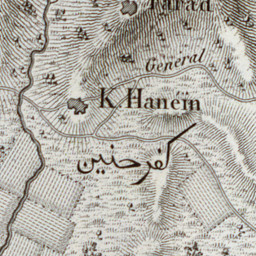 Tarad
Général
K. Hanein
كفر حنين